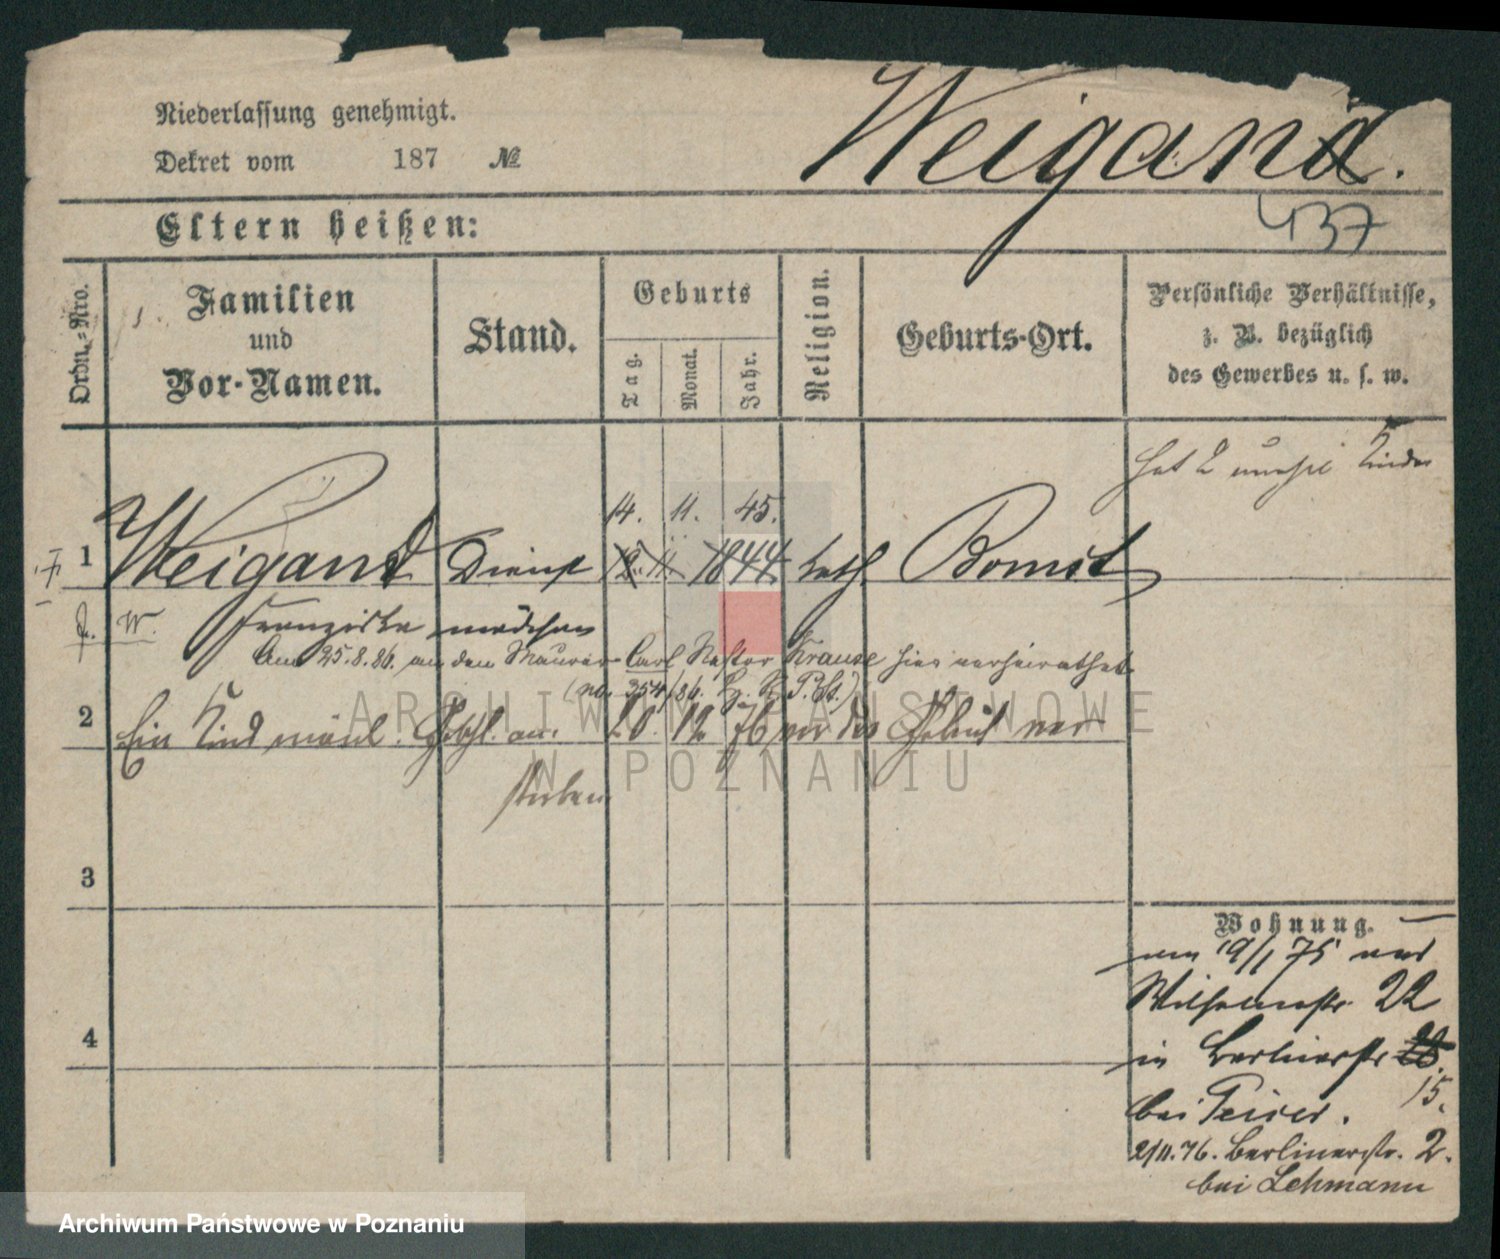 Niederlassung genehmigt.
Dekret vom 187 №
Weigand.
437
Eltern heißen:
Ordn.-Nro.
Familien
und
Vor-Namen.
Stand.
Geburts
Tag. Monat. Jahr.
Religion.
Geburts-Ort.
Persönliche Verhältnisse,
z. B. bezüglich
des Gewerbes u. s. w.
hat 2 unehel Kinder
14. 11. 45.
1 Weigand Dienst 12. 11 1844 kath. Bomst
W. Franziska mädchen
Am 25.8.86. an den Maurer Carl Krause hier verheirathet
(No. 354/86. P.St.)
2 Ein Kind männl. Geschl. am. 20. 12 76 vor der Geburt ver
storben
3
4
Wohnung.
am 19/1 75 von
Wilhelmstr. 22
in Berlinerstr 28.
bei 15.
2/11.76. Berlinerstr. 2.
bei Lehmann
ARCHIWUM PAŃSTWOWE
W POZNANIU
Archiwum Państwowe w Poznaniu